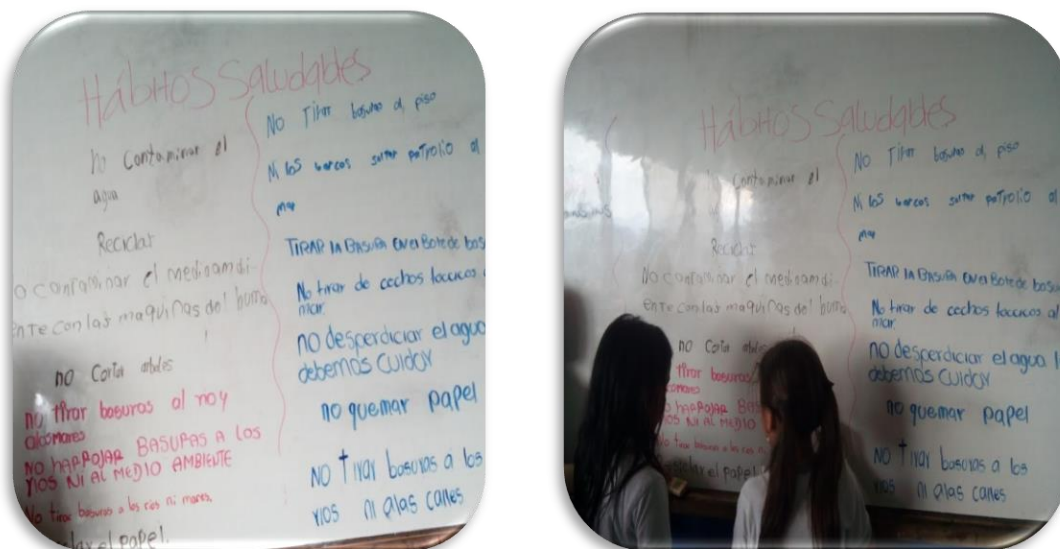 Hábitos Saludables
no Contaminar el
agua
Reciclar
o contaminar el medioamdi-
ente con las maquinas del humo
no Corta
no tirar basuras al
NO HARROJAR BASURAS A LOS
RIOS NI AL MEDIO AMBIENTE
No tirar basuras a los rios ni mares.
el papel.
No Tirar basura al piso
Ni los barcos soltar petrolio al
mar
TIRAR LA BASURA EN el Bote de bas
No tirar de cechos tocicos
mar.
no desperdiciar el agua
debemos cuidar
no quemar papel
NO tirar basuras a los
rios ni alas calles
Hábitos Saludables
Contaminar el
Reciclar
No contaminar el medioamdi-
ente con las maquinas del humo
no Corta
tirar basuras
HARROJAR BAS
IOS NI AL MEDIO
No tirar basuras a los rios
el papel
No Tirar basura al piso
Ni los barcos soltar petrolio al
mar
TIRAR LA BASURA EN el Bote de basu
No tirar de cechos tocicos al
mar.
no desperdiciar el agua
debemos cuidar
no quemar papel
NO tirar basuras a los
rios ni alas calles